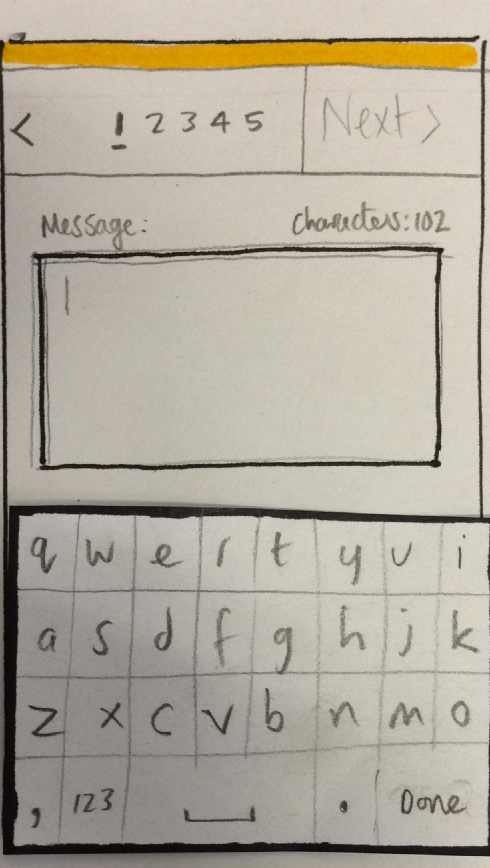 < 1 2 3 4 5 Next >
Message: Characters: 102
q w e r t y u i
a s d f g h j k
z x c v b n m o
, 123 . Done